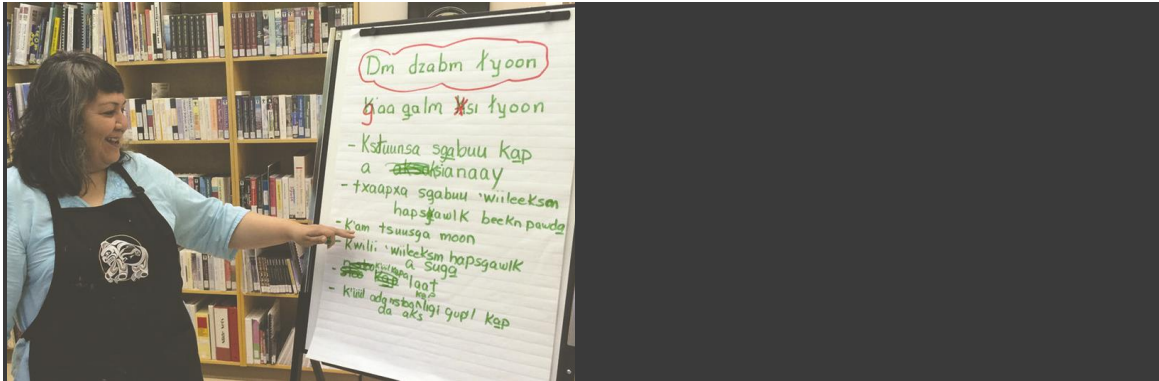 Dm dzabm łyoon
g̲aa galm ksi łyoon
- Kstuunsa sga̲buu ka̲p
a anaay
- txaapxa sgabuu 'wiileeksm
hapsgawlk beekn pawda̲
- K'am tsuusga moon
- Kwilii 'wiileeksm hapsgawlk
a suga̲
laat
ligi gupl ka̲p
da aks